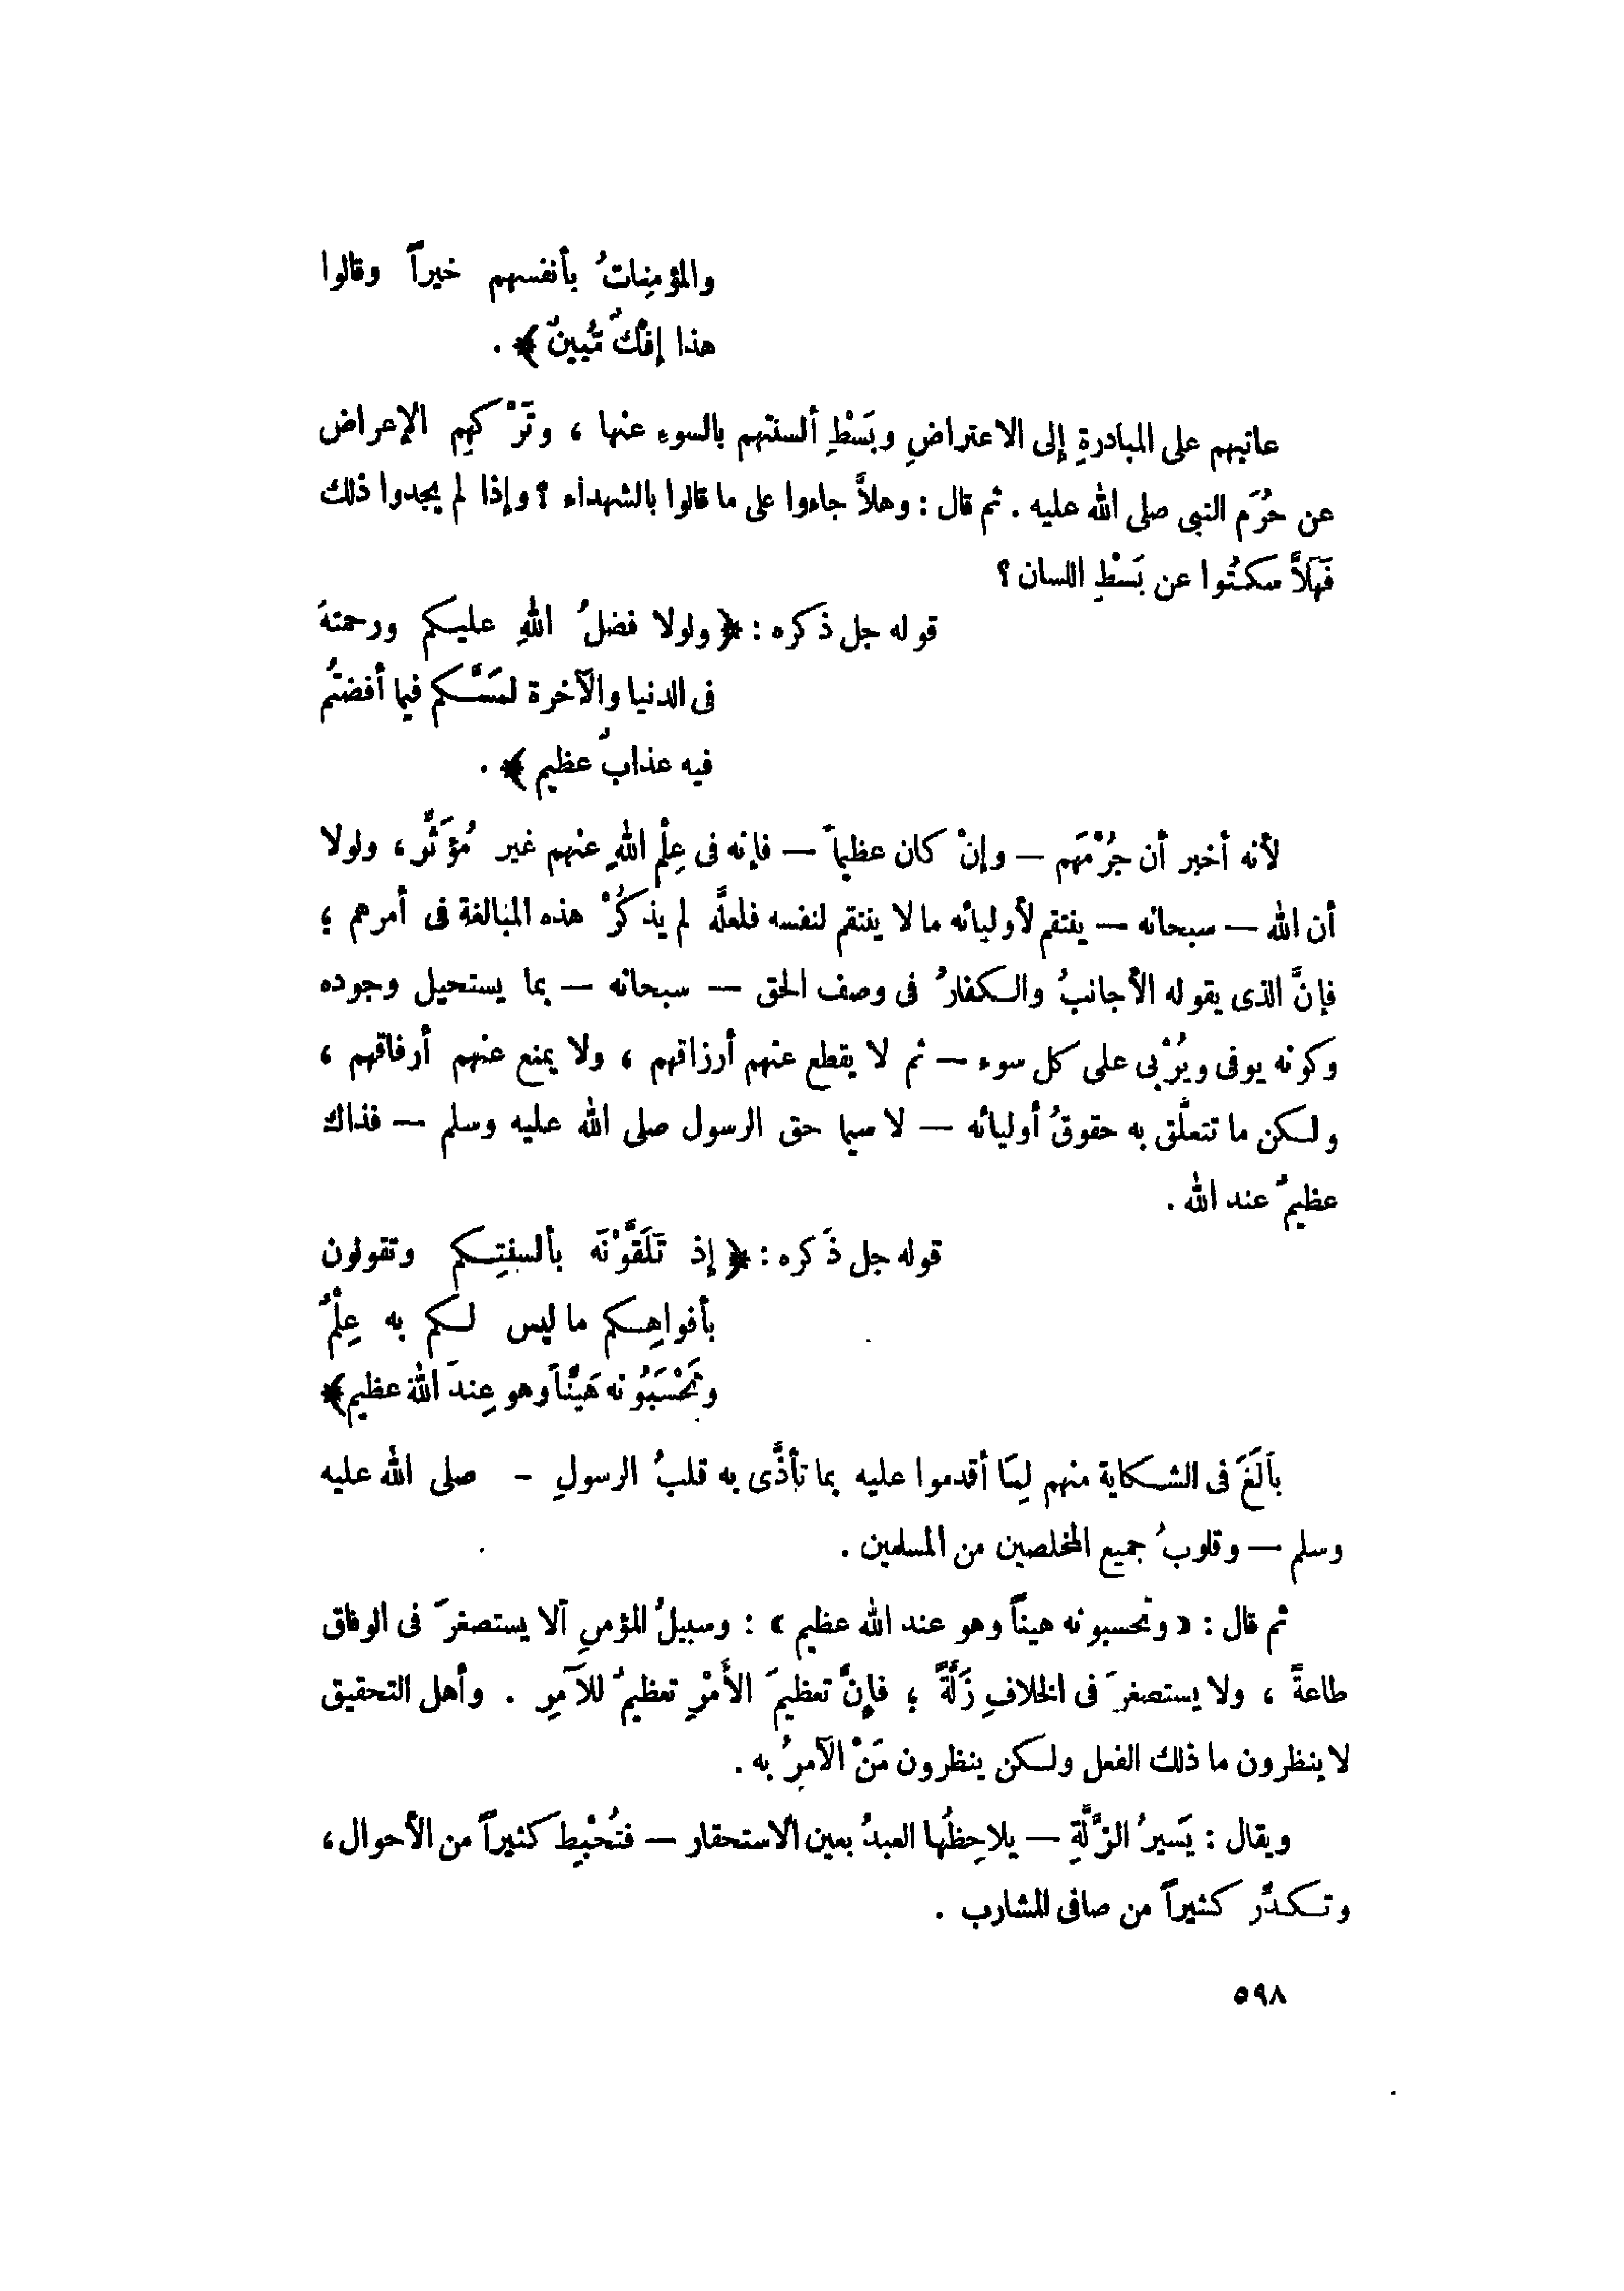 والمؤمِناتُ بأنفسهم خيراً وقالوا
هذا إفْكٌ مُّبينٌ ﴾ .
عاتبهم على المبادرةِ إلى الاعتراضِ وبَسْطِ ألسنتهم بالسوءِ عنها ، وتَرْكِهِم الإعراض
عن حُرَم النبى صلى الله عليه . ثم قال : وهلاَّ جاءوا على ما قالوا بالشهداء ؟ وإذا لم يجدوا ذلك
فَهَلاَّ سكتُوا عن بَسْطِ اللسان ؟
قوله جل ذكره : ﴿ ولولا فضلُ اللهِ عليكم ورحمتهُ
فى الدنيا والآخرة لمَسَّكم فيما أفضتُم
فيه عذابٌ عظيم ﴾ .
لأنه أخبر أن جُرْمَهم — وإنْ كان عظيماً — فإنه فى عِلْمِ اللهِ عنهم غير مُؤَثِّر ، ولولا
أن الله — سبحانه — ينتقم لأوليائه ما لا ينتقم لنفسه فلعلَّه لم يذكُرْ هذه المبالغة فى أمرهم ؛
فإنَّ الذى يقوله الأجانبُ والكفارُ فى وصف الحق — سبحانه — بما يستحيل وجوده
وكونه يوفى ويُرْبى على كل سوء — ثم لا يقطع عنهم أرزاقهم ، ولا يمنع عنهم أرفاقهم ،
ولكن ما تتعلَّق به حقوقُ أوليائه — لا سيما حق الرسول صلى الله عليه وسلم — فذاك
عظيمٌ عند الله .
قوله جل ذَكره : ﴿ إذ تَلَقَّوْنَه بألسنتِكم وتقولون
بأفواهِكم ما ليس لكم به عِلْمٌ
وتَحْسَبُونه هَيِّناً وهو عِندَ اللهِ عظيم﴾
بَالَغَ فى الشكاية منهم لِمَا أقدموا عليه بما تأذَّى به قلبُ الرسولِ - صلى الله عليه
وسلم — وقلوبُ جميع المخلصين من المسلمين .
ثم قال : « وتحسبونه هيناً وهو عند الله عظيم » : وسبيلُ المؤمنِ ألا يستصغرَ فى الوفاق
طاعةً ، ولا يستصغرَ فى الخلافِ زَلَّةً ؛ فإنَّ تعظيمَ الأَمْرِ تعظيمٌ للآمِرِ . وأهل التحقيق
لا ينظرون ما ذلك الفعل ولكن ينظرون مَنْ الآمِرُ به .
ويقال : يَسيرُ الزَّلَّةِ — يلاحِظُها العبدُ بعين الاستحقار — فتُحْبِط كثيراً من الأحوال ،
وتكدِّر كثيراً من صافى المشارب .
٥٩٨